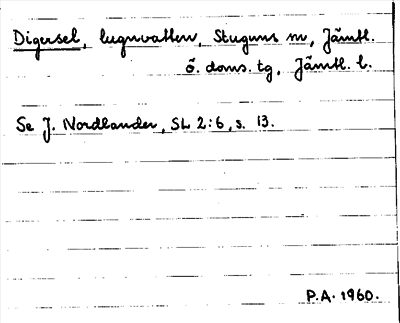 Digersel, lugnvatten, Stuguns sn, Jämtl.
ö. doms. tg, Jämtl. l.
Se J. Nordlander, SL 2:6, s. 13.
P.A. 1960.